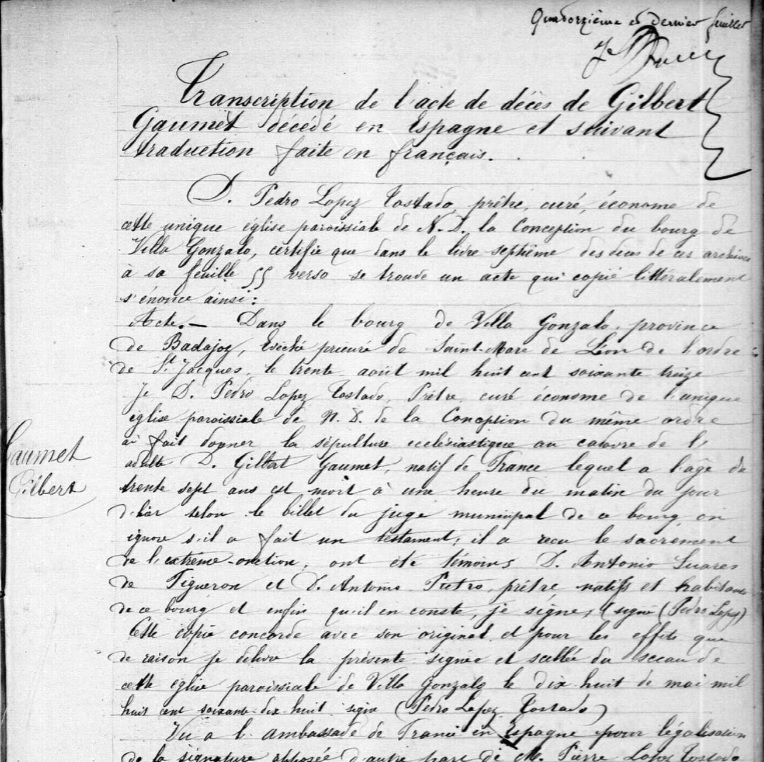 Quatorzième et dernier feuillet
Transcription de l'acte de décès de Gilbert
Gaumet décédé en Espagne et suivant
traduction faite en français.
D. Pedro Lopez Tostado, prêtre, curé, économe de
cette unique église paroissiale de N. D. la Conception du bourg de
Villa Gonzalo, certifie que dans le livre septième des décès de ces archives
à sa feuille 55 verso se trouve un acte qui copié littéralement
s'énonce ainsi:
Acte. — Dans le bourg de Villa Gonzalo, province
de Badajoz, Evêché prieuré de Saint-Marc de Léon de l'ordre
de St Jacques, le trente août mil huit cent soixante treize
Je D. Pedro Lopez Tostado, Prêtre, curé économe de l'unique
église paroissiale de N. D. de la Conception du même ordre
ai fait donner la sépulture ecclésiastique au cadavre de l'
adulte D. Gilbert Gaumet, natif de France lequel a l'âge de
trente sept ans est mort à une heure du matin du jour
d'hier selon le billet du juge municipal de ce bourg on
ignore s'il a fait un testament; il a reçu le sacrement
de l'extrême-onction, ont été témoins D. Antonio Suares
de Figueron et D. Antonio Prêtre natifs et habitants
de ce bourg et enfin qu'il en conste, je signe, (signé (Pedro Lopez)
Cette copie concorde avec son original et pour les effets que
de raison je délivre la présente signée et scellée du sceau de
cette église paroissiale de Villa Gonzalo le dix huit de mai mil
huit cent soixante-dix huit signé (Pedro Lopez Tostado)
Vu à l'ambassade de France en Espagne pour légalisation
de la signature apposée d'autre part de M. Pierre Lopez Tostado
Gaumet
Gilbert